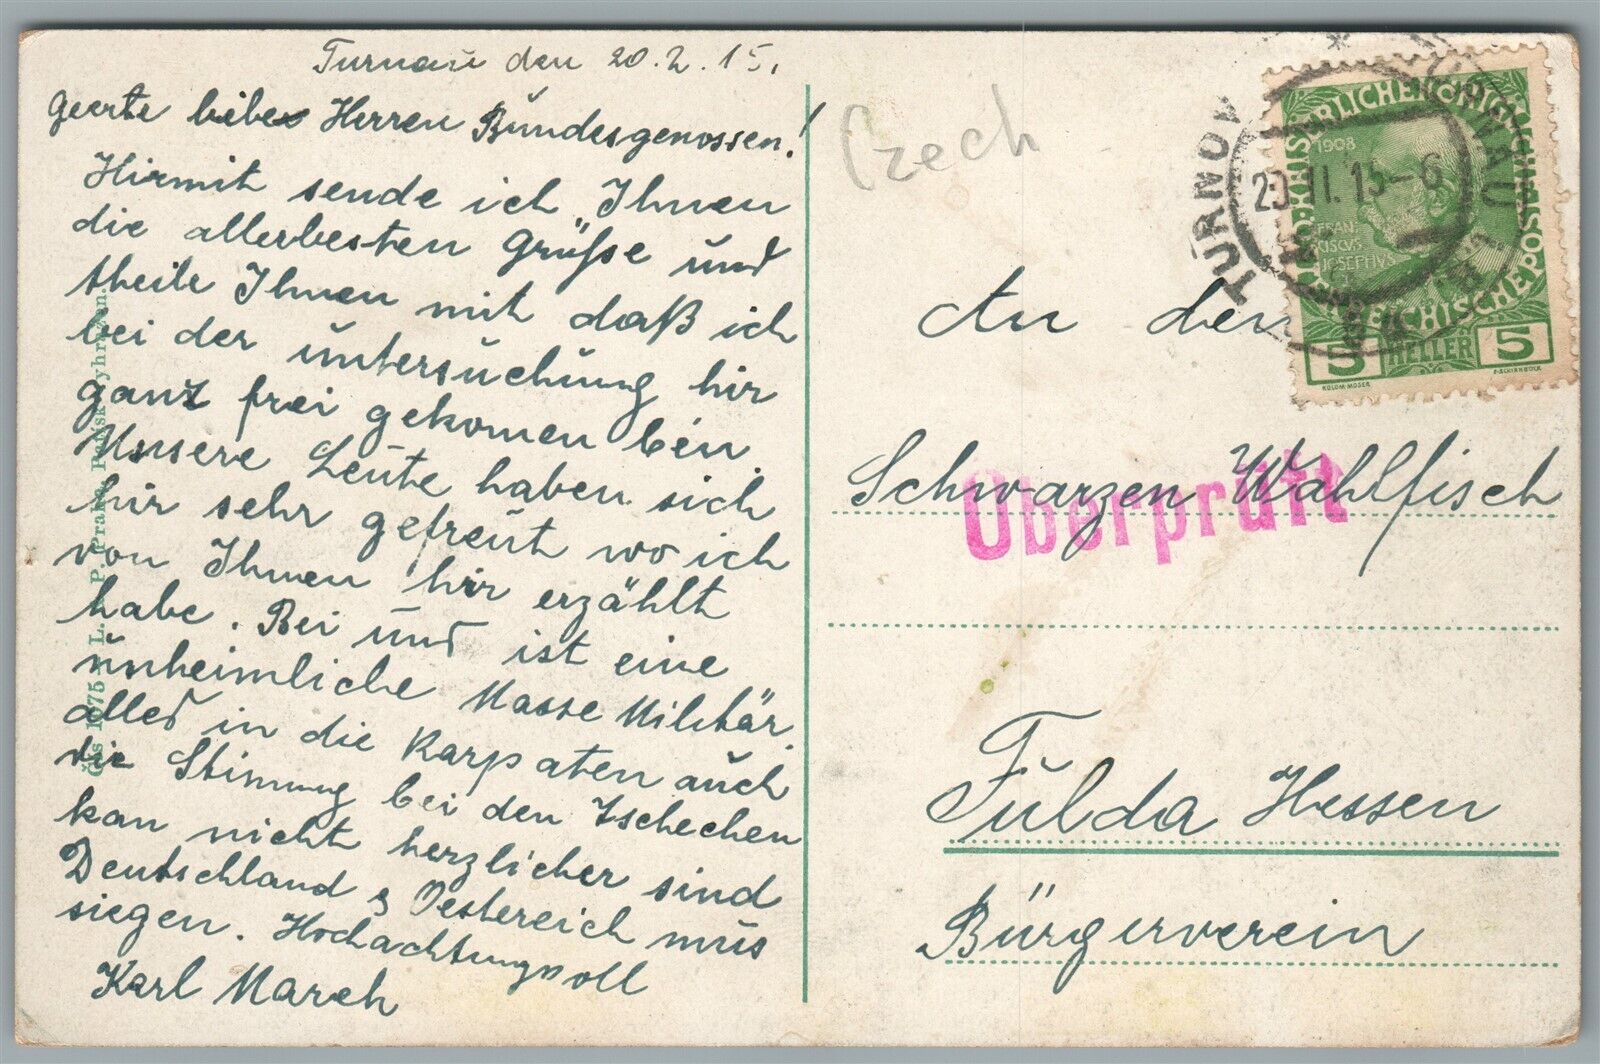 Turnau den 20.2.15.
Geerte liebe Herren Bundesgenossen!
Hirmit sende ich Ihnen
die allerbesten Grüße und
theile Ihnen mit daß ich
bei der untersuchung hir
ganz frei gekomen bin
Unsere Leute haben sich
hir sehr gefreut wo ich
von Ihnen hir erzählt
habe. Bei uns ist eine
unheimliche Masse Militär
alles in die Karpaten auch
die Stimung bei den Tschechen
kan nicht herzlicher sind
Deutschland & Oestereich mus
siegen. Hochachtungsvoll
Karl March
Czech
TURNOV
TURNAU
20.II.15-6
1908
FRAN
CISCVS
JOSEPHVS
5 HELLER 5
KOLOM. MOSER
F. SCHIRNBÖCK
An den
Schwarzen Wahlfisch
Überprüft
Fulda Hessen
Bürgerverein